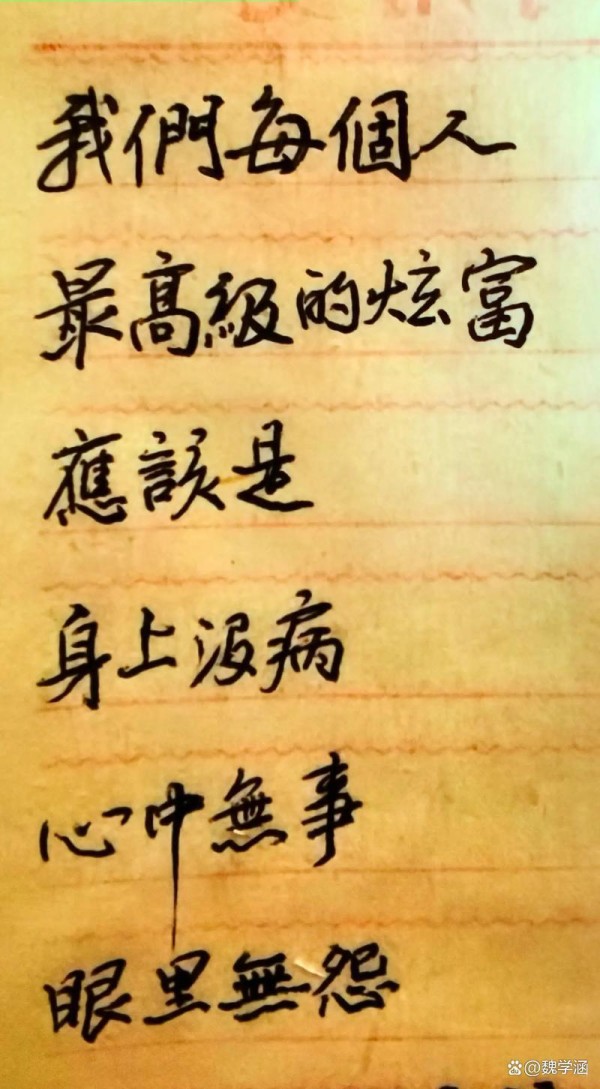 我們每個人
最高級的炫富
應該是
身上沒病
心中無事
眼里無怨
@魏学涵